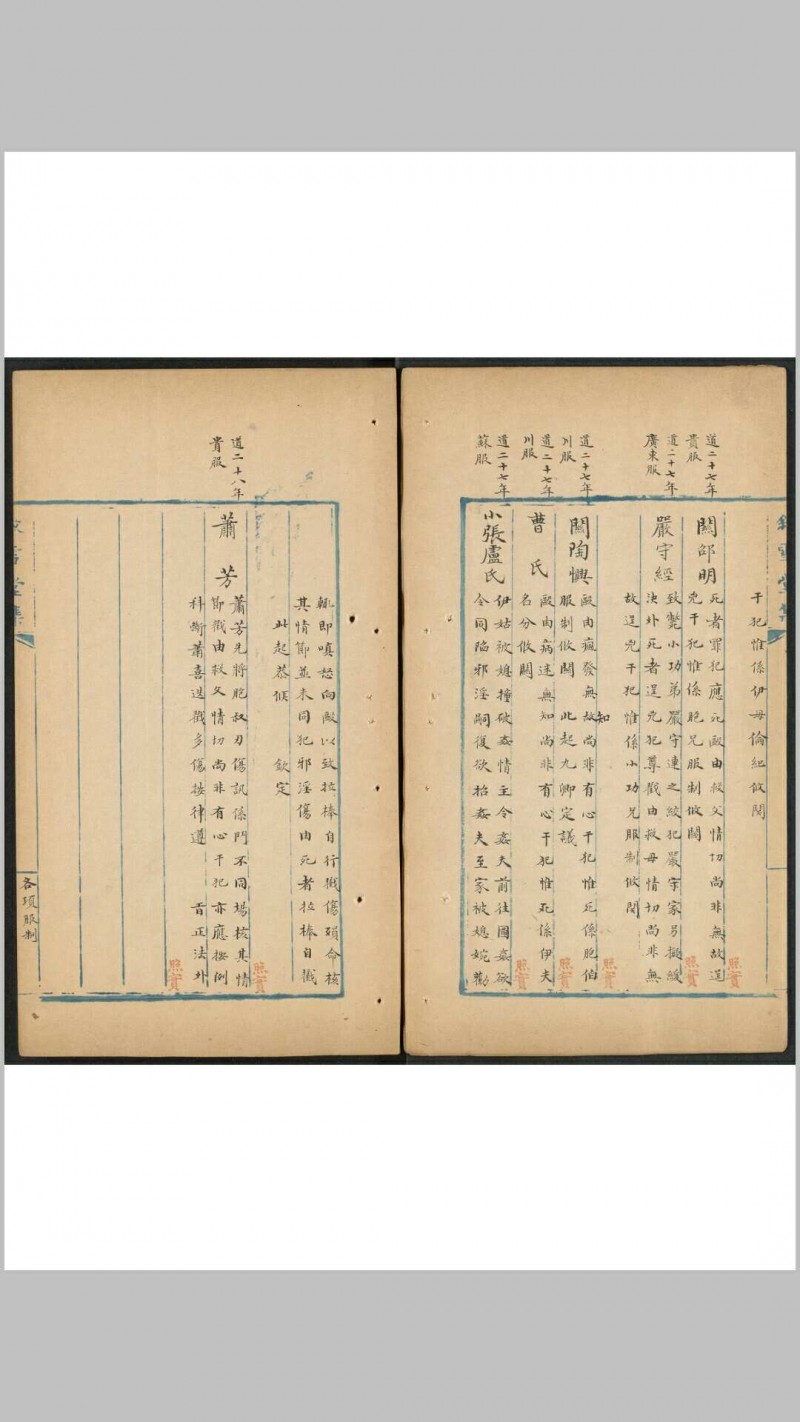 干犯惟係伊母倫紀攸關
道二十七年
貴服
關邵明
死者罪犯應死毆由救父情切尚非無故逞
兇干犯惟係胞兄服制攸關
照實
道二十七年
廣東服
嚴守經
致斃小功弟嚴守連之絞犯嚴守家另擬緩
決外死者逞兇犯尊戳由救母情切尚非無
故逞兇干犯惟係小功兄服制攸關
照實
道二十七年
川服
關陶懊
毆由瘋發無知故尚非有心干犯惟死係胞伯
服制攸關 此起九卿定議
照實
道二十七年
川服
曹氏
毆由病迷無知尚非有心干犯惟死係伊夫
名分攸關
照實
道二十七年
蘇服
小張盧氏
伊姑被媳撞破姦情主令姦夫前往圖姦欲
令同陷邪淫嗣復欲招姦夫至家被媳婉勸
輒即嗔怒向毆以致拉棒自行戳傷殞命核
其情節並未同犯邪淫傷由死者拉棒自戳
此起恭候 欽定
照實
道二十八年
貴服
蕭芳
蕭芳先將胞叔刃傷訊係鬥不同場核其情
節戳由救父情切尚非有心干犯亦應按例
科斷蕭喜迭戳多傷按律遵 旨正法外
照實
各項服制